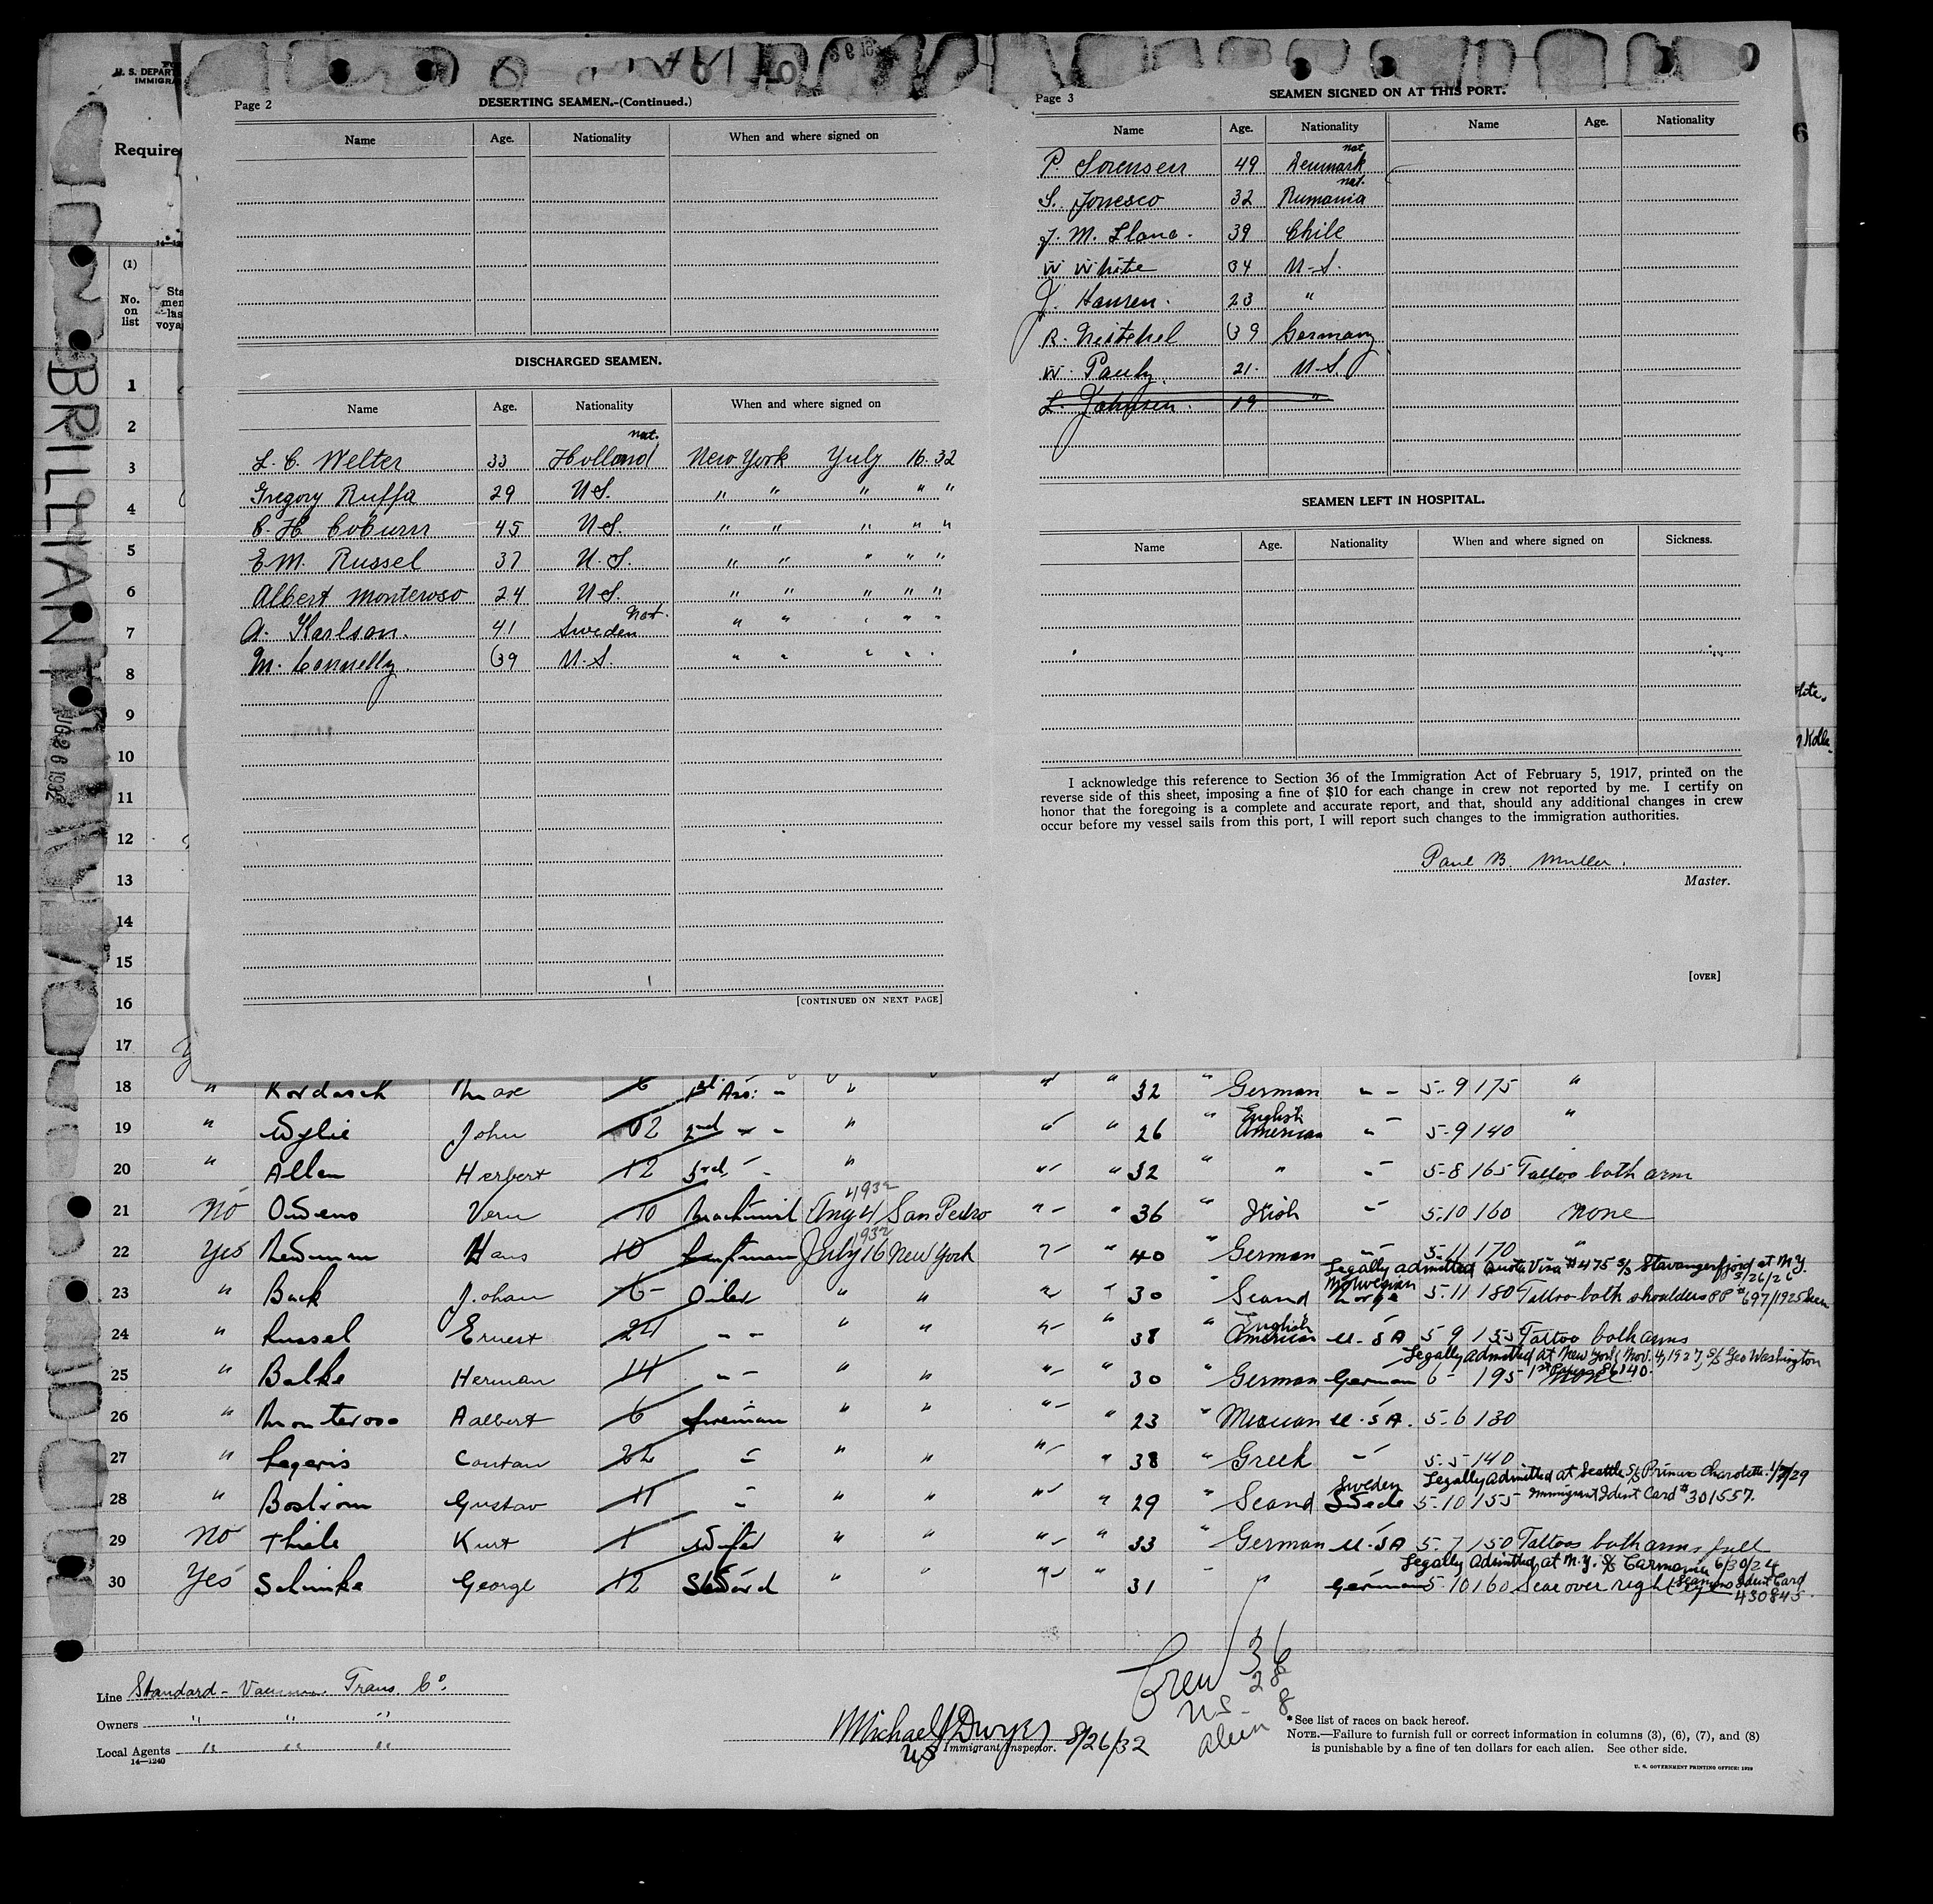 U. S. DEPART
IMMIGRA
Require
6
BRILLIANT
AUG 26 1932
(1)
No. on list
Page 2
DESERTING SEAMEN.-(Continued.)
Name Age. Nationality When and where signed on
DISCHARGED SEAMEN.
Name Age. Nationality When and where signed on
L. C. Welter 33 Holland nat. New York July 16. 32
Gregory Ruffa 29 U.S. " " " " "
C. H. Coburn 45 U.S. " " " " "
E M. Russel 37 U.S. " " " " "
Albert Monteroso 24 U.S. " " " " "
A. Karlson. 41 Sweden nat. " " " " "
M. Connelly. 39 U.S. " " " " "
[CONTINUED ON NEXT PAGE]
Page 3
SEAMEN SIGNED ON AT THIS PORT.
Name Age. Nationality Name Age. Nationality
P. Sorensen 49 Denmark nat
S. Jonesco 32 Rumania nat.
J. M. Llano. 39 Chile
W White 34 U-S.
J. Hansen. 23 "
R. 39 Germany
W. Pauly. 21. U-S
L. Johnsen. 19 "
SEAMEN LEFT IN HOSPITAL.
Name Age. Nationality When and where signed on Sickness.
I acknowledge this reference to Section 36 of the Immigration Act of February 5, 1917, printed on the
reverse side of this sheet, imposing a fine of $10 for each change in crew not reported by me. I certify on
honor that the foregoing is a complete and accurate report, and that, should any additional changes in crew
occur before my vessel sails from this port, I will report such changes to the immigration authorities.
Paul B. Muller.
Master.
[OVER]
1
2
3
4
5
6
7
8
9
10
11
12
13
14
15
16
17
18 " Kordasch Max 6 1st Ass: - " " " 32 " German - - 5-9 175 "
19 " Wylie John 02 2nd " - " " " 26 " English American " - 5-9 140 "
20 " Allen Herbert 12 3rd " - " " " 32 " " " - 5-8 165 Tattoo both arm
21 No Owens Vern 10 Machinist Aug 4 1932 San Pedro " " 36 " Irish " - 5-10 160 none
22 Yes Newman Hans 10 July 16 1932 New York " " 40 " German " - 5-11 170 "
Legally admitted Quota Visa #475 S/S Stavangerfjord at N.Y. 5/26/26
23 " Back Johan 6- Oiler " " " " 30 " Scand Norwegian Norge 5-11 180 Tattoo both shoulders PP #697/1925
24 " Russel Ernest 24 - - " " " " 38 " English American U-SA 5 9 155 Tattoo both arms
Legally admitted at New York Nov. 4, 1927, S/S Geo Washington
25 " Balke Herman 14 - - " " " " 30 " German German 6- 195 none
26 " Monteroso Aalbert 6 fireman " " " " 23 " Mexican U.SA. 5-6 130
27 " Legeris Contan 22 " " " " " 38 " Greek " 5-5 140
Legally Admitted at Seattle S/S Princess Charolette 1/7/29
28 " Bostrom Gustav 11 " " " " " 29 " Scand Sweden Swede 5-10 155 Immigrant Ident Card #301557.
29 No Thiele Kurt 1 Wiper " " " " 33 " German U-SA 5-7 150 Tattoos both arms full
Legally Admitted at N.Y. S/S Carmania 6/30/24
30 Yes Schinke George 12 Steward " " " " 31 " " German 5-10 160 Scar over right eye Seamans Ident Card 430845.
Crew 36
U.S - 28
alien 8
Line Standard - Vacuum Trans. Co.
Owners " " "
Local Agents " " "
14—1240
Michael J Dwyer 8/26/32
US Immigrant Inspector.
*See list of races on back hereof.
NOTE.—Failure to furnish full or correct information in columns (3), (6), (7), and (8)
is punishable by a fine of ten dollars for each alien. See other side.
U. S. GOVERNMENT PRINTING OFFICE: 1929